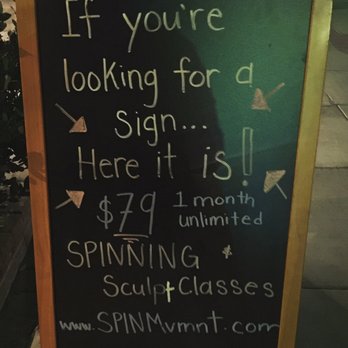 If you're
looking for a
sign...
Here it is!
$79 1 month
unlimited
SPINNING *
Sculpt Classes
www.SPINMvmnt.com